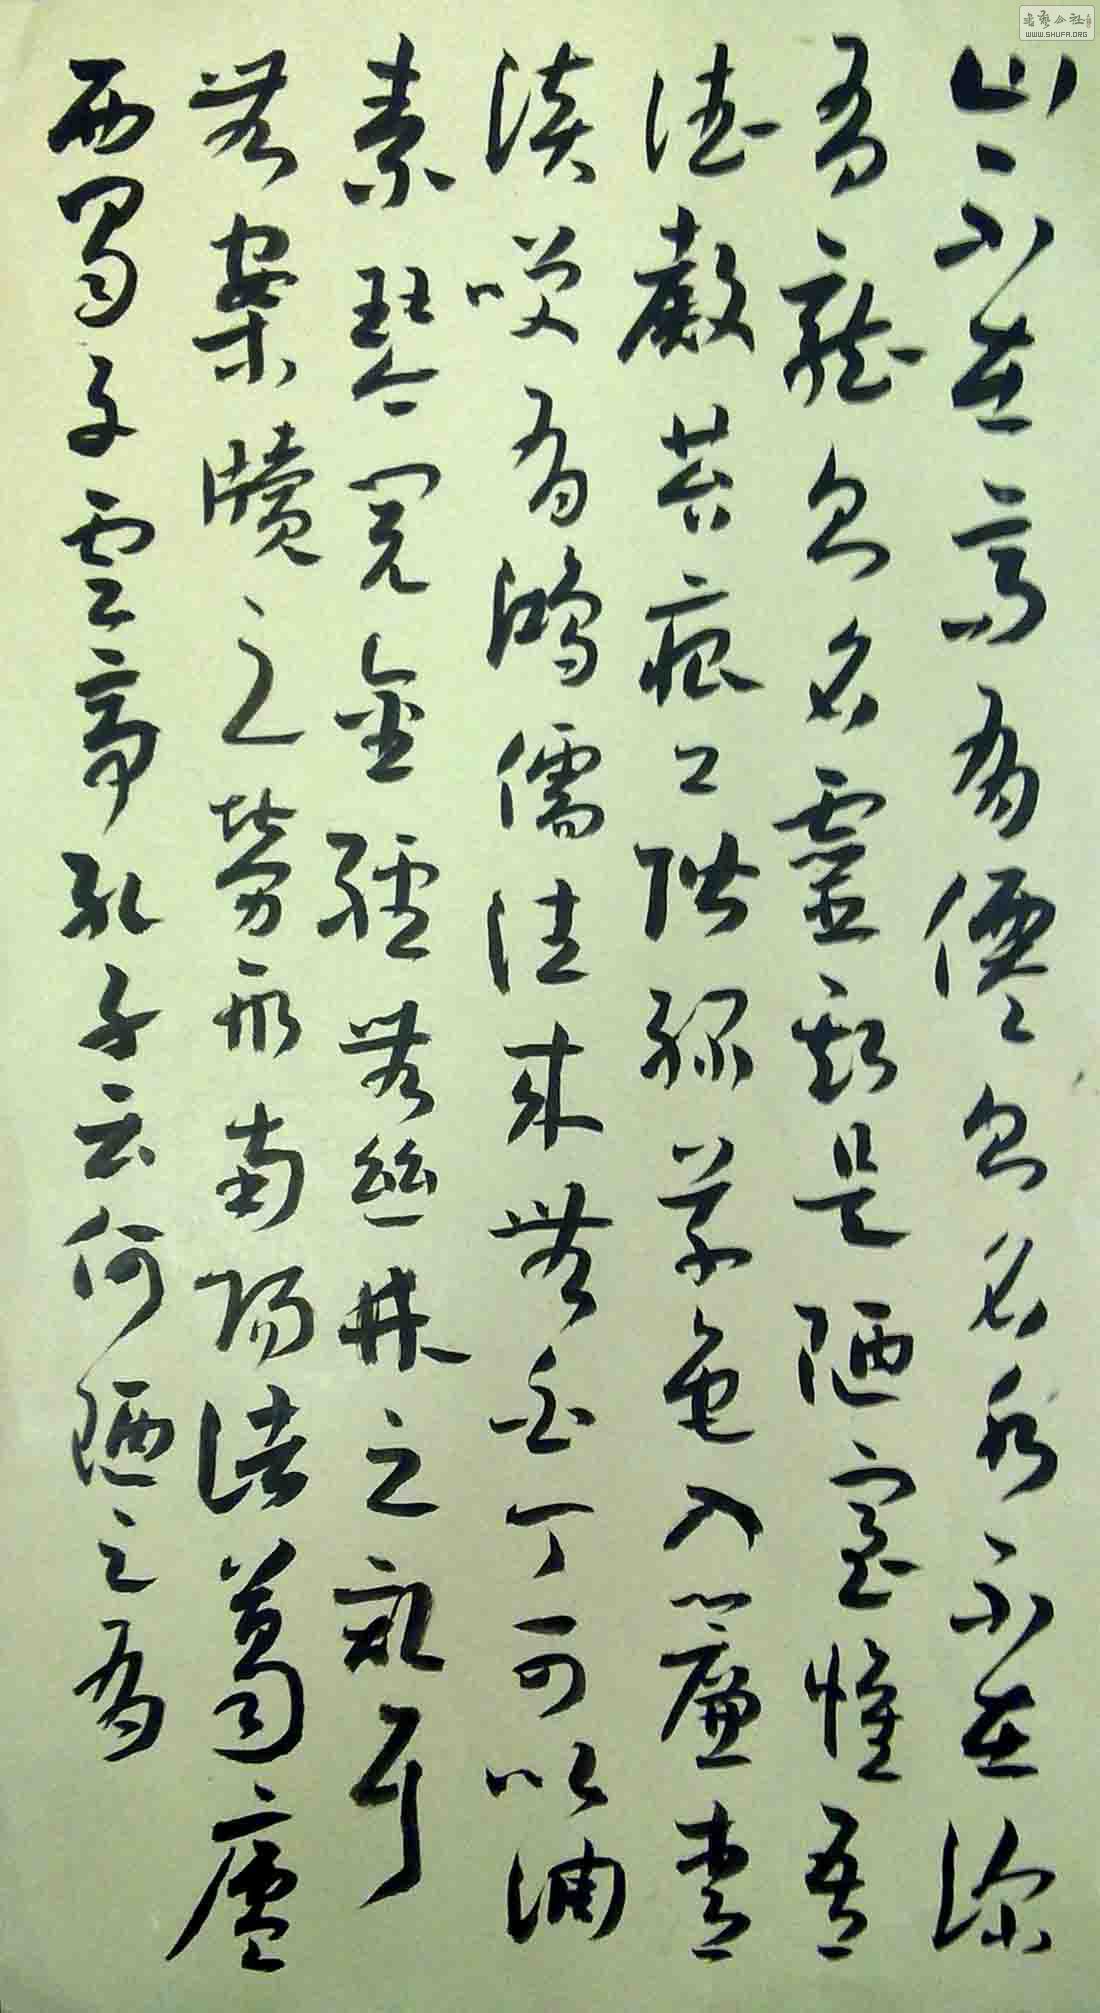 山不在高有僊則名水不在深
有龍則名靈斯是陋室惟吾
德馨苔痕上階綠草色入簾青
談咲有鴻儒往來無白丁可以調
素琴閱金經無絲竹之亂耳
無案牘之勞形南陽諸葛廬
西蜀子雲亭孔子云何陋之有
WWW.SHUFA.ORG